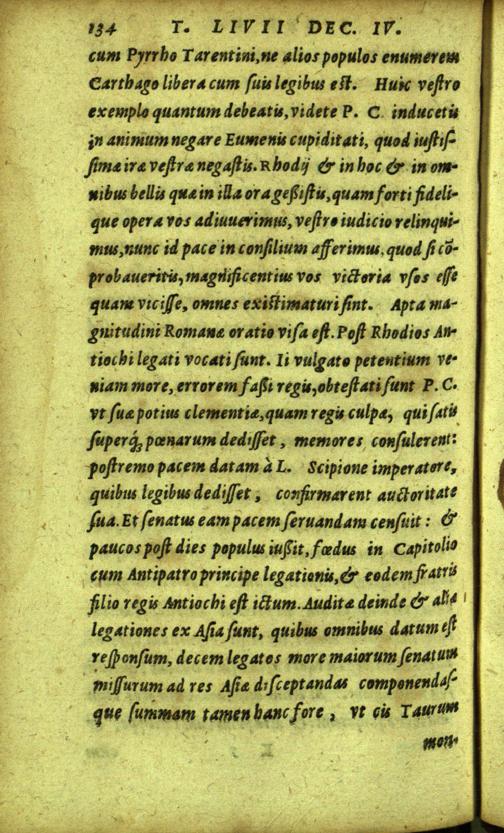 134 T. LIVII DEC. IV.
cum Pyrrho Tarentini, ne alios populos enumerem
Carthago libera cum suis legibus est. Huic vestro
exemplo quantum debeatis, videte P. C. inducetis
in animum negare Eumenis cupiditati, quod iustis-
simæ iræ vestræ negastis. Rhodij & in hoc & in om-
nibus bellis quæ in illa ora gessistis, quam forti fideli-
que opera vos adiuuerimus, vestro iudicio relinqui-
mus, nunc id pace in consilium afferimus, quod si cō-
probaueritis, magnificentius vos victoria vsos esse
quam vicisse, omnes existimaturi sint. Apta ma-
gnitudini Romanæ oratio visa est. Post Rhodios An-
tiochi legati vocati sunt. Ii vulgato petentium ve-
niam more, errorem fassi regis, obtestati sunt P. C.
vt suæ potius clementiæ, quam regis culpæ, qui satis
superq́; pœnarum dedisset, memores consulerent:
postremo pacem datam à L. Scipione imperatore,
quibus legibus dedisset, confirmarent auctoritate
sua. Et senatus eam pacem seruandam censuit: &
paucos post dies populus iussit, fœdus in Capitolio
cum Antipatro principe legationis, & eodem fratris
filio regis Antiochi est ictum. Auditæ deinde & aliæ
legationes ex Asia sunt, quibus omnibus datum est
responsum, decem legatos more maiorum senatum
missurum ad res Asiæ disceptandas componendas-
que summam tamen hanc fore, vt cis Taurum
mon-